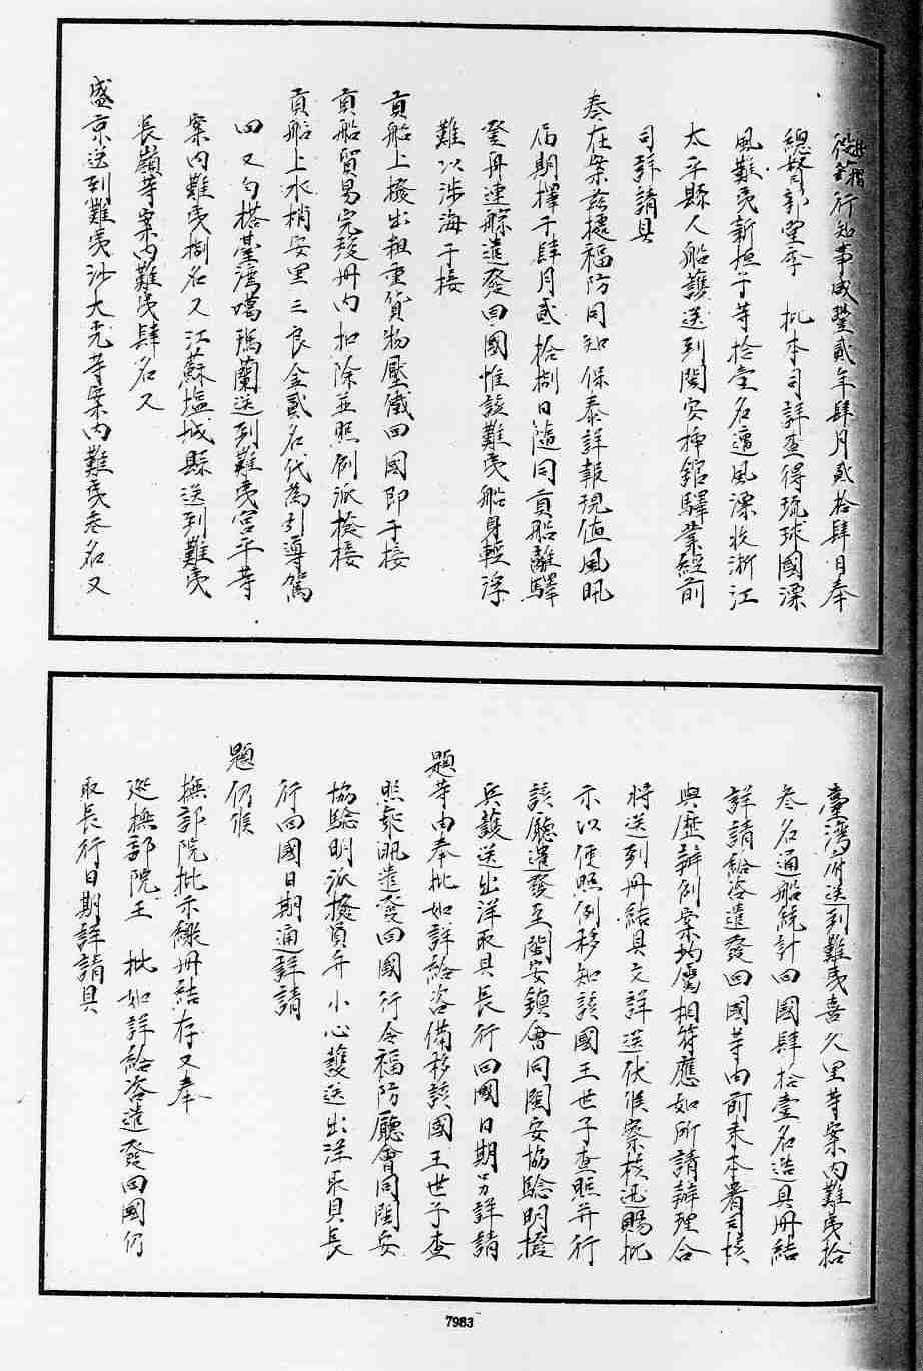 行知事咸豐貳年肆月貳拾肆日奉
總督部堂季　批本司詳查得琉球國漂
風難夷新垣子等拾壹名遭風漂收浙江
太平縣人船護送到閩安插館驛業經前
司詳請具
奏在案茲據福防同知保泰詳報現值風汛
屆期擇于肆月貳拾捌日隨同貢船離驛
登舟連䑸遣發回國惟該難夷船身輕浮
難以涉海于接
貢船上撥出粗重貨物壓儎回國即于接
貢船貿易完竣冊內扣除並照例派撥接
貢船上水梢安里三良金貳名代為引導駕
回又勻搭臺灣噶瑪蘭送到難夷宮平等
案內難夷捌名又江蘇塩城縣送到難夷
長嶺等案內難夷肆名又
盛京送到難夷沙大㐬等案內難夷叁名又
臺灣府送到難夷喜久里等案內難夷拾
叁名通船統計回國肆拾壹名造具冊結
詳請給咨遣發回國等由前來本署司核
與歷辦例案均屬相符應如所請辦理合
將送到冊結具文詳送伏候察核迅賜批
示以便照例移知該國王世子查照并行
該廳遣發至閩安鎮會同閩安協驗明撥
兵護送出洋取具長行回國日期另詳請
題等由奉批如詳給咨備移該國王世子查
照乘汛遣發回國行令福防廳會同閩安
協驗明派撥員弁小心護送出洋取具長
行回國日期通詳請
題仍候
撫部院批示繳冊結存又奉
巡撫部院王　批如詳給咨遣發回國仍
取長行日期詳請具
7983